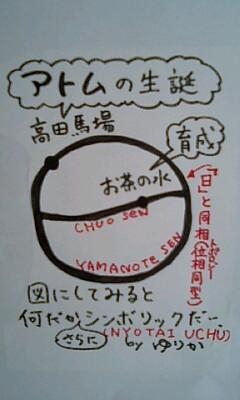 アトムの生誕
高田馬場
育成
お茶の水
CHUO SEN
YAMANOTE SEN
「日」と同相(位相同型)
トポロジー
図にしてみると
何だかシンボリックだ…
さらに
(NYOTAI UCHU)
by ゆりか